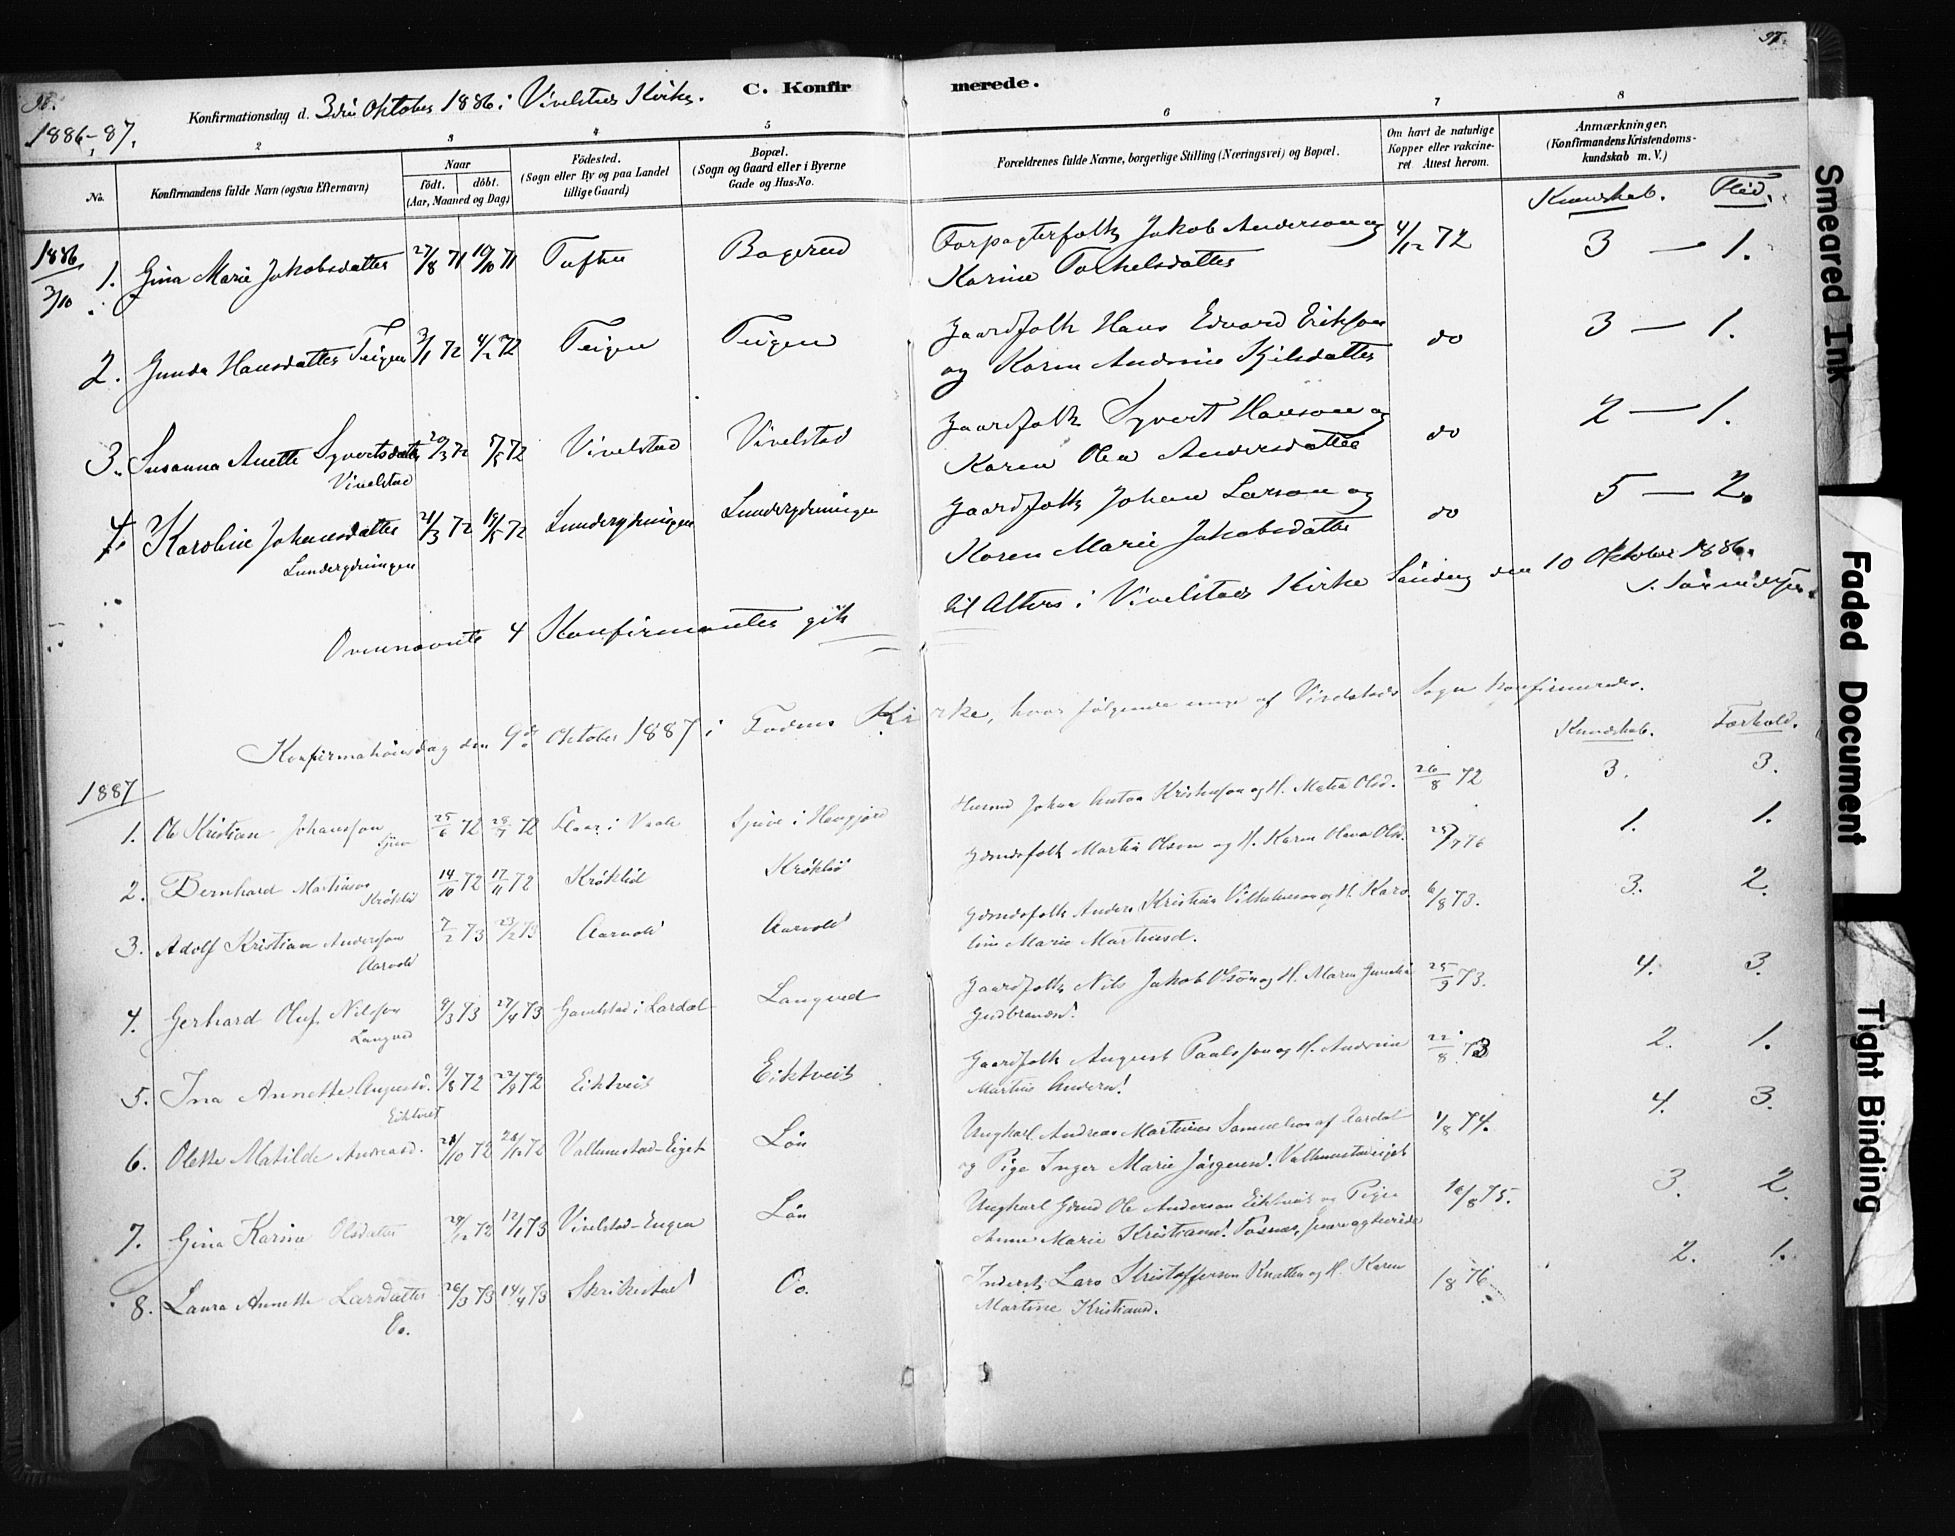 96.
97.
1886-87.
Konfirmationsdag d. 3die Oktober 1886 i Vivelstad Kirke.
C. Konfirmerede.
1
2
3
4
5
6
7
8
No.
Konfirmandens fulde Navn (ogsaa Efternavn)
Naar
født. døbt.
(Aar, Maaned og Dag)
Fødested.
(Sogn eller By og paa Landet
tillige Gaard)
Bopæl.
(Sogn og Gaard eller i Byerne
Gade og Hus-No.
Forældrenes fulde Navne, borgerlige Stilling (Næringsvei) og Bopæl.
Om havt de naturlige
Kopper eller vakcine-
ret Attest herom.
Anmærkninger.
(Konfirmandens Kristendoms-
kundskab m. V.)
Kundskab. Flid.
1886
3/10
1. Gina Marie Jakobsdatter 27/8 71 19/10 71 Tufte Bagerud Forpagterfolk Jakob Anderson og 4/12 72 3 — 1.
Karine Torkelsdatter
2. Gunda Hansdatter Teigen 3/1 72 4/2 72 Teigen Teigen Gaardfolk Hans Edvard Erikson do 3 — 1.
og Karen Andrine Kjilsdatter
3. Susanna Anette Syvertsdatter 20/3 72 5/5 72 Vivelstad Vivelstad Gaardfolk Syvert Hanson og do 2 — 1.
Vivelstad
Karen Olea Andersdatter
4. Karoline Johansdatter 21/3 72 19/5 72 Gaardfolk Johan Larson og do 5 — 2.
Karen Marie Jakobsdatter
Ovennævnte 4 Konfirmanter gik til Alters i Vivelstad Kirke Søndag den 10 Oktober 1886.
Konfirmationsdag den 9de Oktober 1887 i Fodens Kirke, hvor følgende unge af Vivelstad Sogn konfirmeredes.
Kundskab. Forhold.
1887
1. Ole Kristian Johansson 25/6 72 28/7 72 Johan Anton Kristenson og H. Matea Olsd. 26/8 72 3. 3.
2. Bernhard Martinson 14/10 72 17/11 72 Krøklid Krøklid Gbrndsfolk Martin Olson og H. Karen Olava Olsd. 1. 1.
Krøklid
3. Adolf Kristian Anderson 7/2 73 23/2 73 Aarvold Aarvold Gbrndsfolk Anders Kristian Vilhelmson og H. Karo- 6/8 73. 3. 2.
Aarvold
line Marie Martinsd.
4. Gerhard Oluf Nilsson 9/3 73 27/4 73 Gavelstad i Lardal Langved Gaardfolk Nils Jakob Olson og H. Maren 25/9 73. 4. 3.
Langved
Gudbrandsd.
5. Ina Annette Augustd. 9/8 72 22/9 72 Eiktveit Eiktveit Gaardfolk August Paalsson og H. Andrine 22/8 73 2. 1.
Eiktveit
Martine Andersd.
6. Olette Matilde Andreasd. Løn Ungkarl Andreas Martinus Samuelson af Lardal 1/8 74. 4. 3.
og Pige Inger Marie Jørgensd.
7. Gina Karine Olsdatter 29/12 72 12/1 73 Vivelstad-Engen Løn Ungkarl Ole Anderson Eiktveit og Pige 16/8 75. 3. 2.
Anne Marie Kristiansd.
8. Laura Annette Larsdatter 26/3 73 14/4 73 Skrikestad Oo. Inderst Lars Kristofferson Knatten og H. Karen 1/8 76 2. 1.
Oo.
Martine Kristiansd.
Smeared Ink
Faded Document
Tight Binding